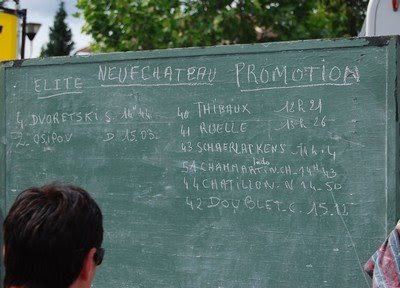 ELITE NEUFCHATEAU PROMOTION
4 DVORETSKI. S. 14 44
2. OSIPOV D. 15.03
40 THIBAUX 12h21
41 RUELLE 13h26
43 SCHAERLAEKENS 14h14
ludo
54 CHAMMARTIN.CH_14H43
44 CHATILLON 14_50
42 DOUBLET.C. 15.12